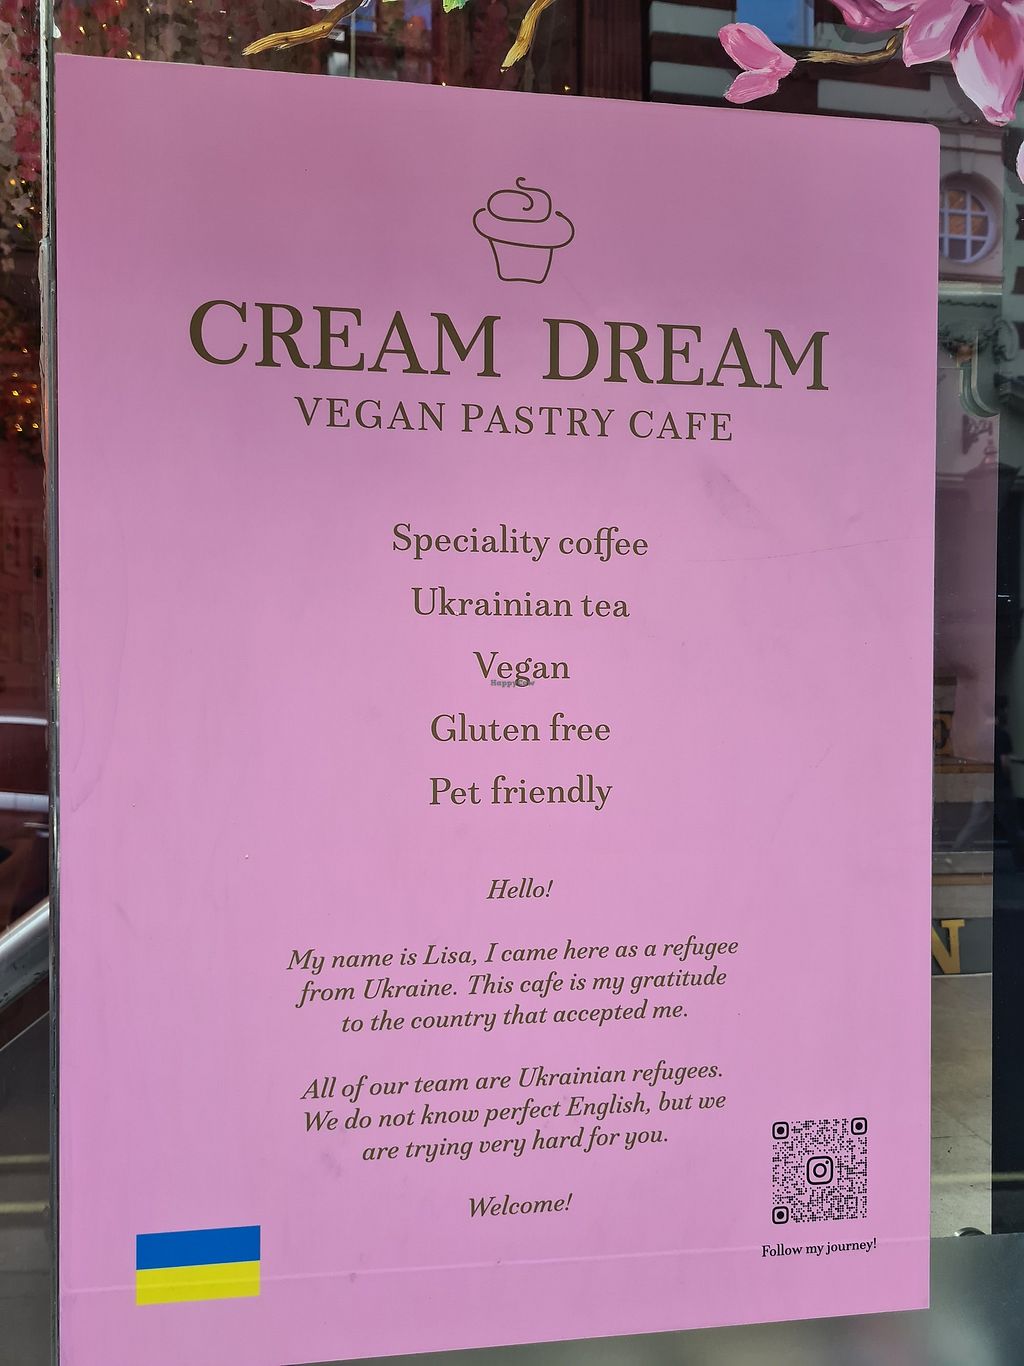 CREAM DREAM
VEGAN PASTRY CAFE
Speciality coffee
Ukrainian tea
Vegan
HappyCow
Gluten free
Pet friendly
Hello!
My name is Lisa, I came here as a refugee
from Ukraine. This cafe is my gratitude
to the country that accepted me.
All of our team are Ukrainian refugees.
We do not know perfect English, but we
are trying very hard for you.
Welcome!
Follow my journey!
N